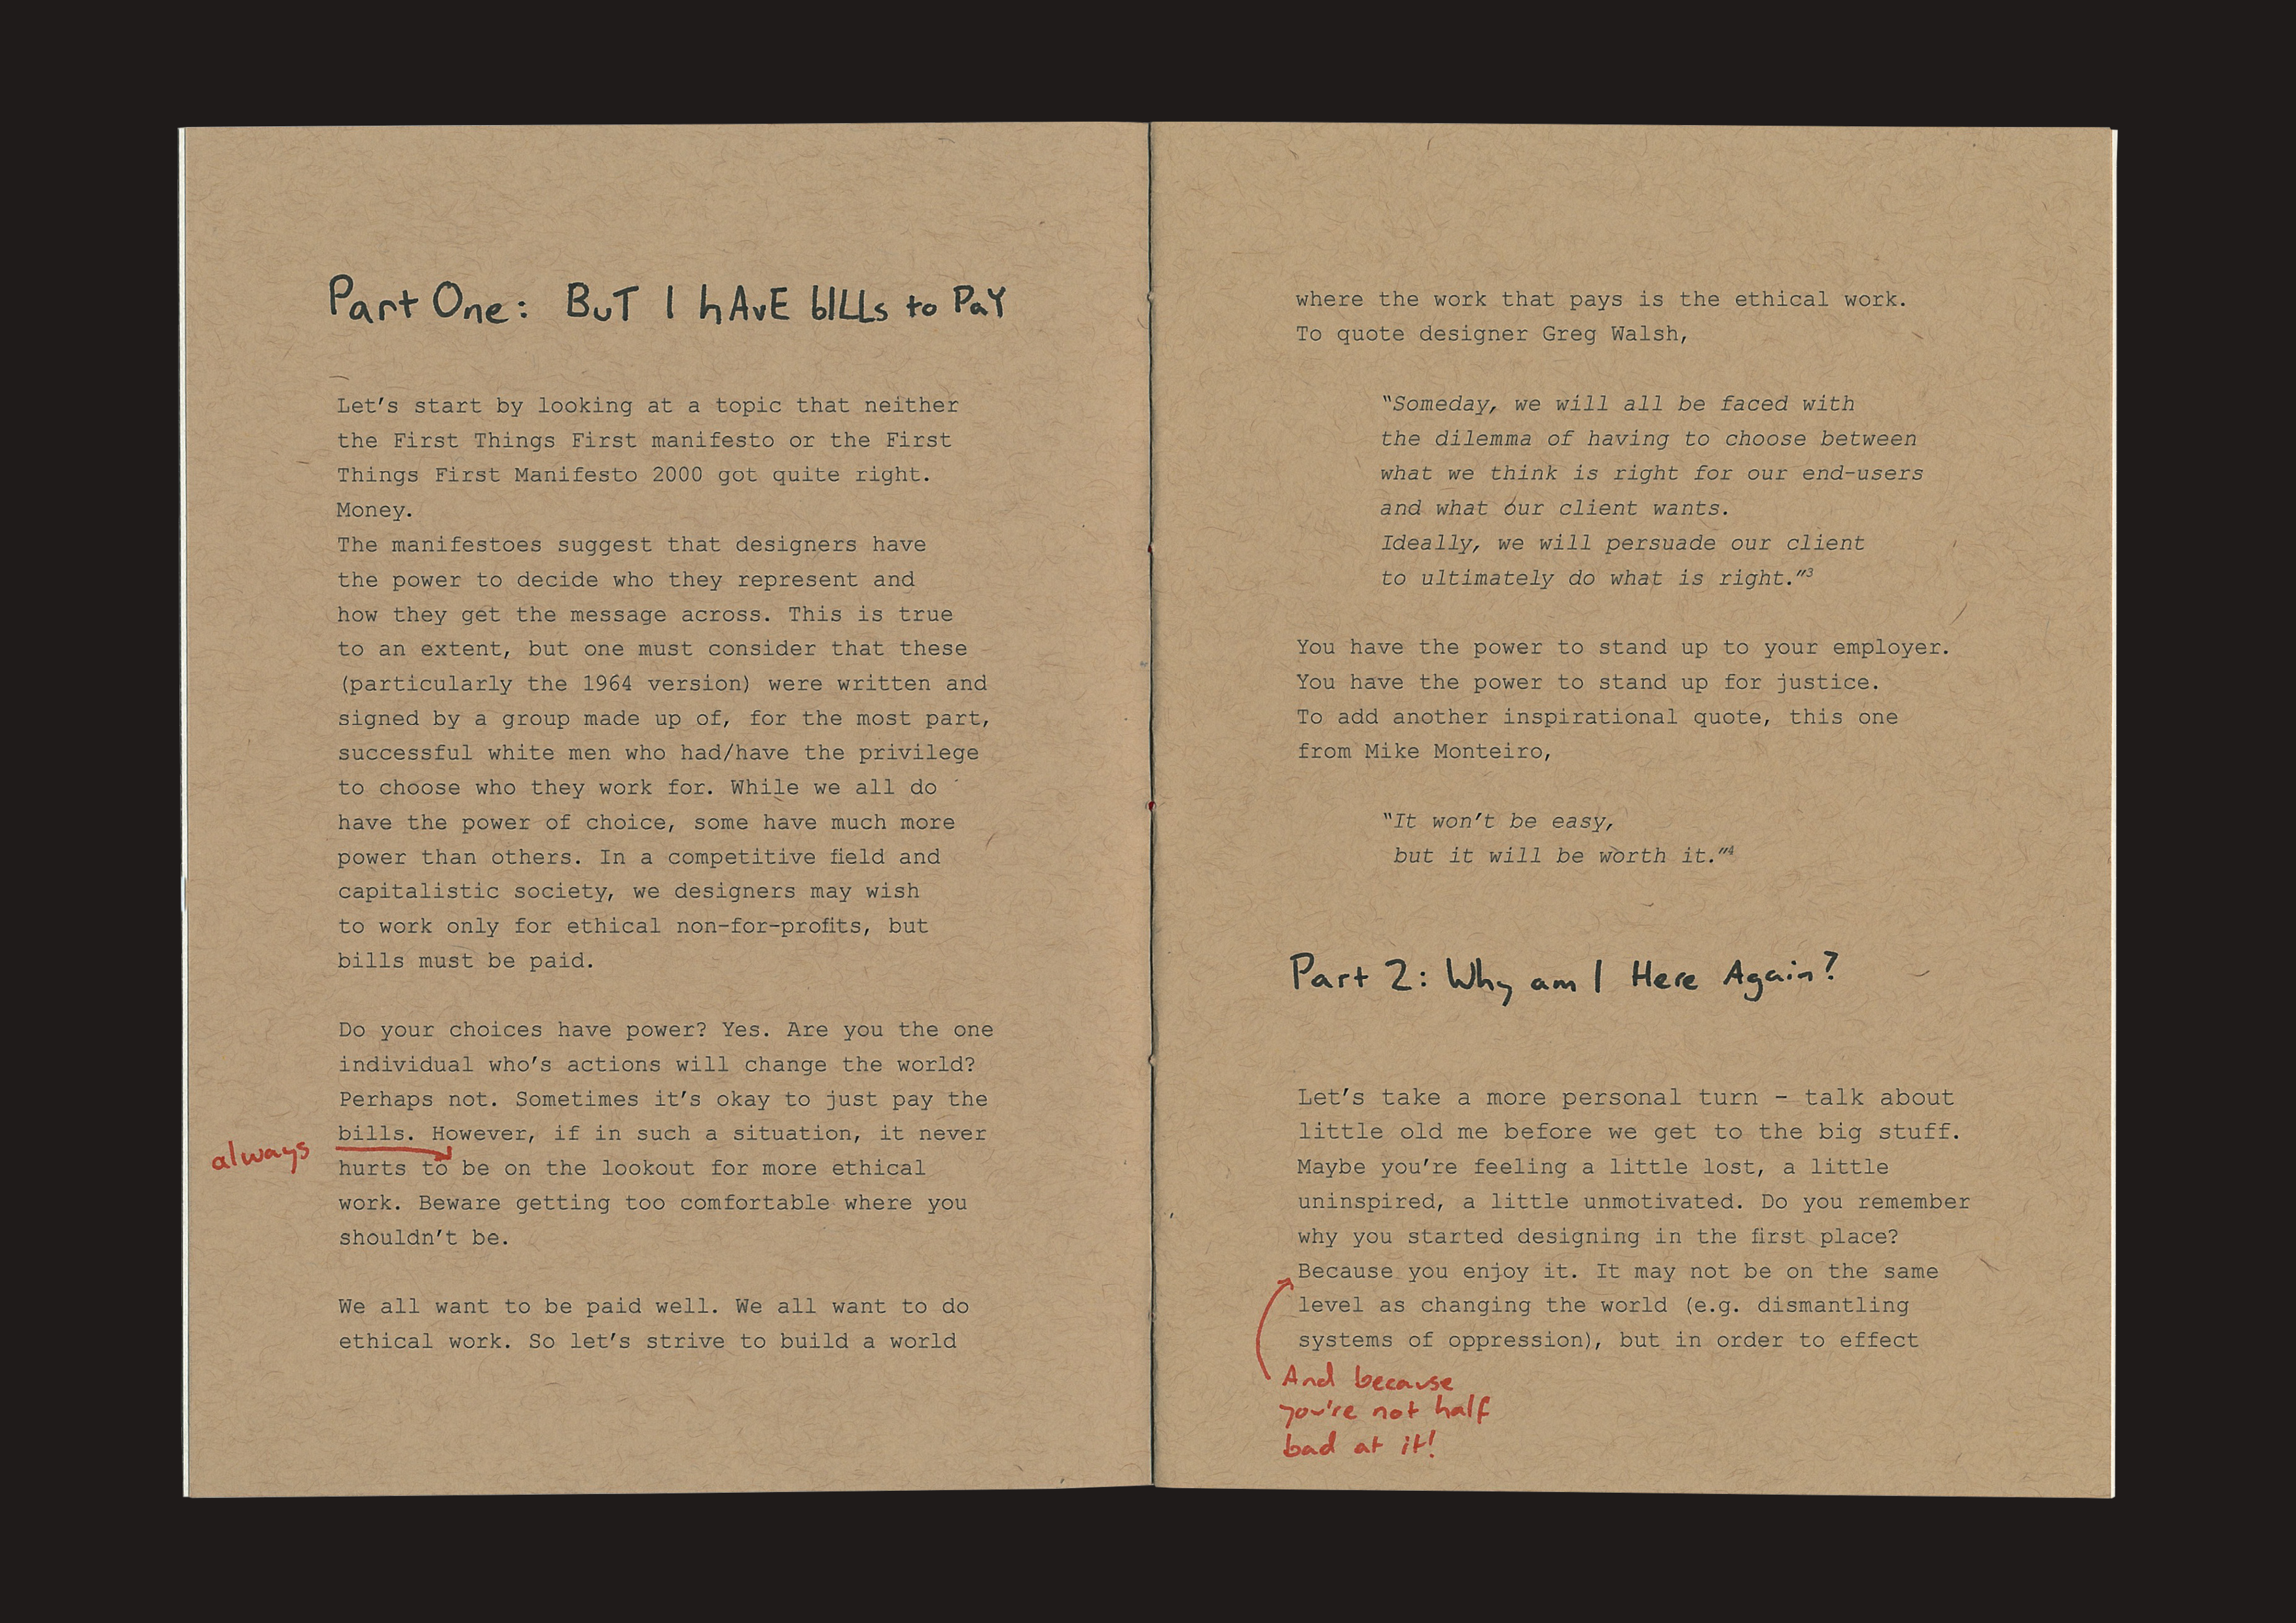 Part One: BuT I hAvE bILLs to PaY
Let's start by looking at a topic that neither
the First Things First manifesto or the First
Things First Manifesto 2000 got quite right.
Money.
The manifestoes suggest that designers have
the power to decide who they represent and
how they get the message across. This is true
to an extent, but one must consider that these
(particularly the 1964 version) were written and
signed by a group made up of, for the most part,
successful white men who had/have the privilege
to choose who they work for. While we all do
have the power of choice, some have much more
power than others. In a competitive field and
capitalistic society, we designers may wish
to work only for ethical non-for-profits, but
bills must be paid.
Do your choices have power? Yes. Are you the one
individual who's actions will change the world?
Perhaps not. Sometimes it's okay to just pay the
bills. However, if in such a situation, it never
always
hurts to be on the lookout for more ethical
work. Beware getting too comfortable where you
shouldn't be.
We all want to be paid well. We all want to do
ethical work. So let's strive to build a world
where the work that pays is the ethical work.
To quote designer Greg Walsh,
“Someday, we will all be faced with
the dilemma of having to choose between
what we think is right for our end-users
and what our client wants.
Ideally, we will persuade our client
to ultimately do what is right.”³
You have the power to stand up to your employer.
You have the power to stand up for justice.
To add another inspirational quote, this one
from Mike Monteiro,
“It won't be easy,
but it will be worth it.”⁴
Part 2: Why am I Here Again?
Let's take a more personal turn – talk about
little old me before we get to the big stuff.
Maybe you're feeling a little lost, a little
uninspired, a little unmotivated. Do you remember
why you started designing in the first place?
Because you enjoy it. It may not be on the same
level as changing the world (e.g. dismantling
systems of oppression), but in order to effect
And because
you're not half
bad at it!